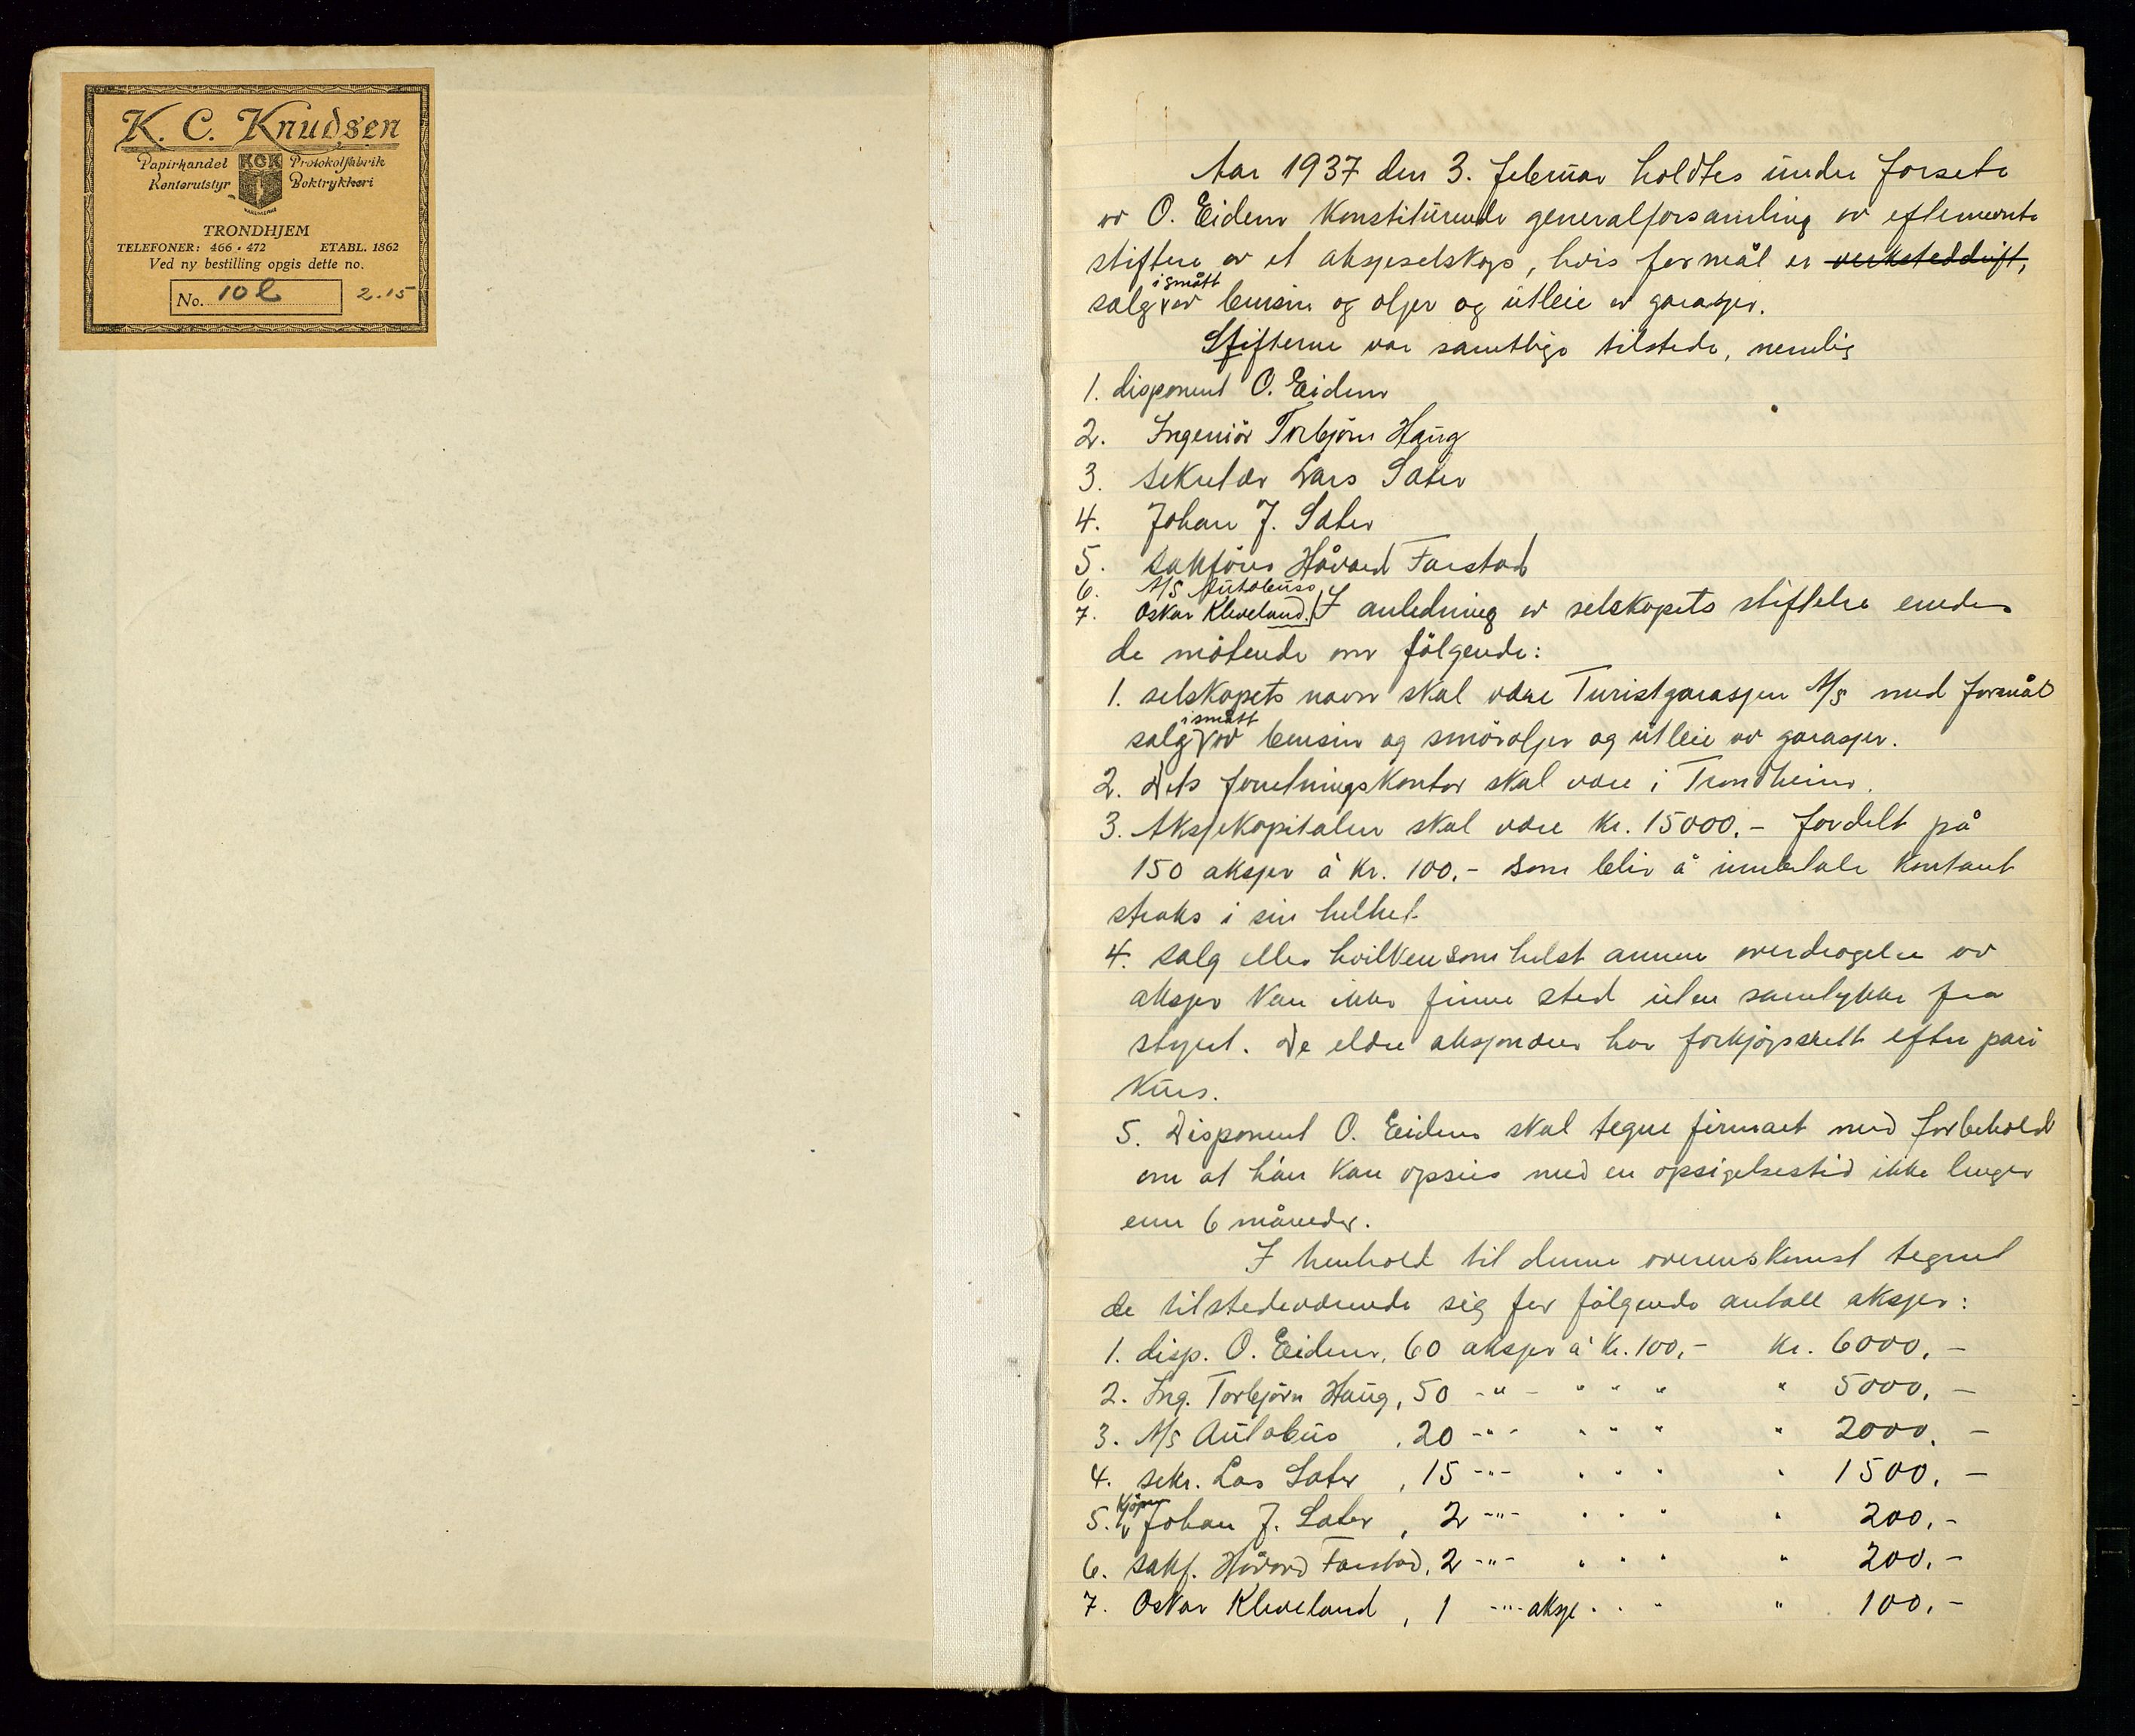 K. C. Knudsen
Papirhandel KCK Protokolfabrik
Kontorutstyr Boktrykkeri
TRONDHJEM
TELEFONER: 466 • 472 ETABL. 1862
Ved ny bestilling opgis dette no.
No. 10 l 2.15
Aar 1937 den 3. februar holdtes under forsete
av O. Eidem konstituerende generalforsamling av efternevnte
stiftere av et aksjeselskap, hvis formål er verksteddrift,
i smått
salg av bensin og oljer og utleie av garasjer.
Stifterne var samtlige tilstede, nemlig
1. disponent O. Eidem
2. Ingeniör Torbjörn Haug
3. sekretær Lars Sæter
4. Johan J. Sæter
5. sakförer Håvard Farstad
6. A/S Autobuss
7. Oskar Kleveland. I anledning av selskapets stiftelse enedes
de mötende om fölgende:
1. selskapets navn skal være Turistgarasjen A/S med formål
i smått
salg av bensin og smöroljer og utleie av garasjer.
2. Dets forretningskontor skal være i Trondheim.
3. Aksjekapitalen skal være kr. 15000.- fordelt på
150 aksjer à kr. 100.- som blir å innbetale kontant
straks i sin helhet.
4. salg eller hvilkensomhelst annen overdragelse av
aksjer kan ikke finne sted uten samtykke fra
styret. De eldre aksjonærer har forkjöpsrett efter pari
kurs.
5. Disponent O. Eidem skal tegne firmaet med forbehold
om at han kan opsies med en opsigelsestid ikke lenger
enn 6 måneder.
I henhold til denne overenskomst tegnet
de tilstedeværende sig for fölgende antall aksjer:
1. disp. O. Eidem, 60 aksjer à kr. 100,- kr. 6000,-
2. Ing. Torbjörn Haug, 50 -"- " " " " 5000,-
3. A/S Autobus , 20 -"- " " " " 2000,-
4. sekr. Lars Sæter , 15 -"- " " " " 1500,-
5. Kjöpm Johan J. Sæter , 2 -"- " " " " 200,-
6. sakf. Håvard Farstad, 2 -"- " " " " 200,-
7. Oskar Kleveland , 1 -"- aksje " " " " 100,-